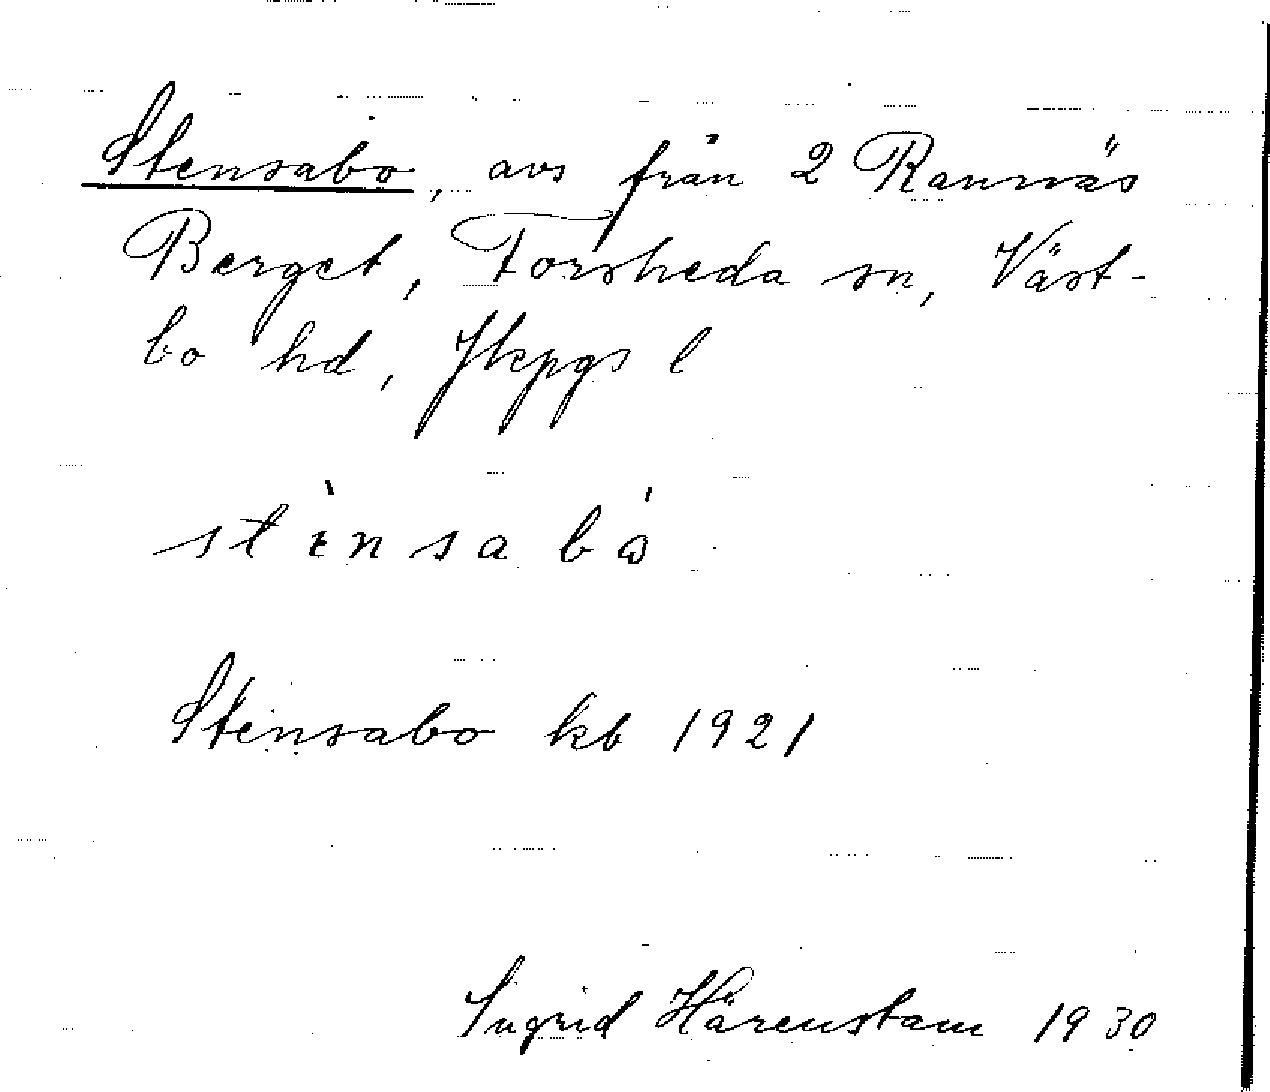 Stensabo, avs från 2 Rannäs
Berget, Forsheda sn, Väst-
bo hd, Jkpgs l
stènsabó
Stensabo kb 1921
Ingrid Härenstam 1930